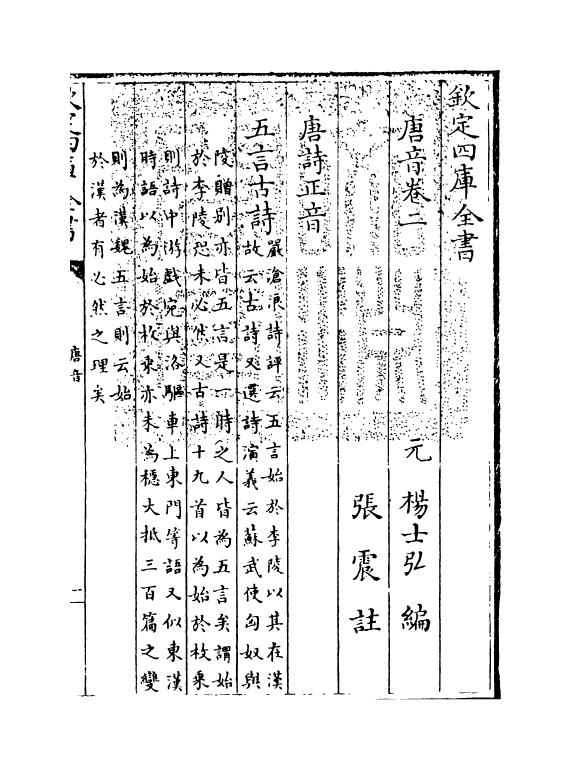 欽定四庫全書
唐音卷二
元 楊士弘 編
張震 註
唐詩正音
五言古詩
嚴滄浪詩評云五言始於李陵以其在漢
故云古詩又選詩演義云蘇武使匈奴與
陵贈别亦皆五言是一時之人皆為五言矣謂始
於李陵恐未必然又古詩十九首以為始於枚乗
則詩中游戲宛與洛驅車上東門等語又似東漢
時語以為始於枚乗亦未為穏大抵三百篇之變
則為漢魏五言則云始
於漢者有必然之理矣
唐音